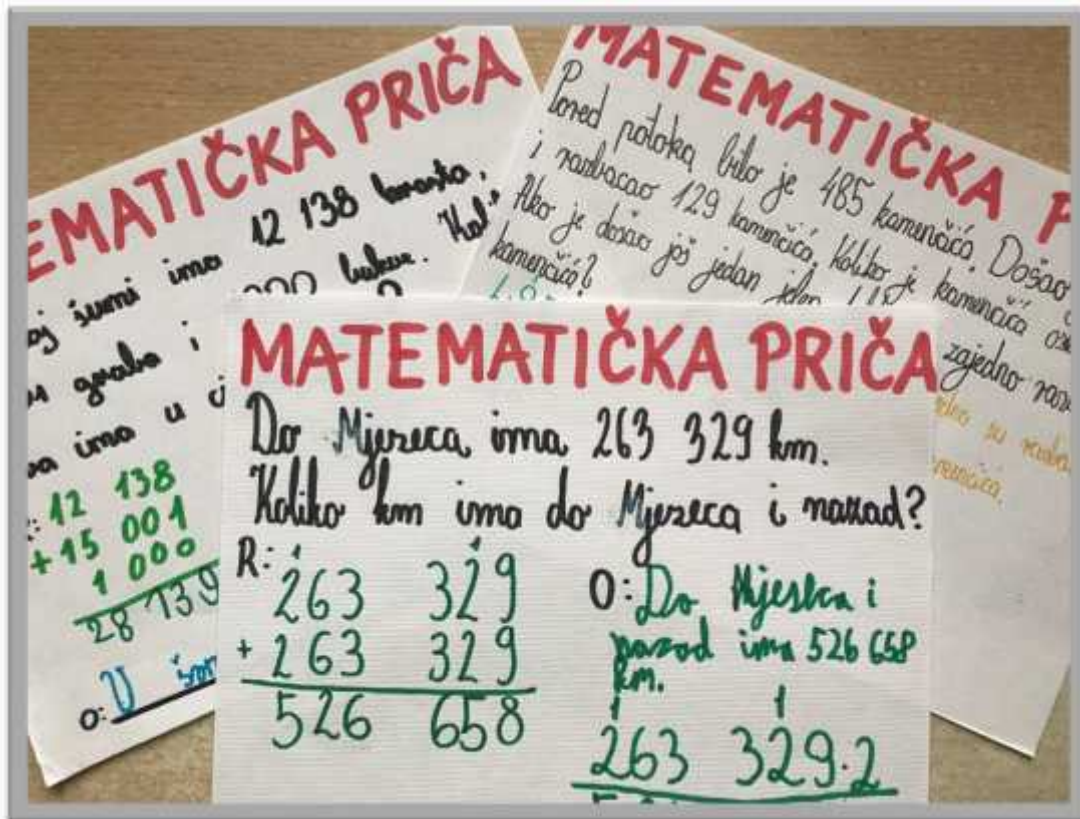 EMATIČKA PRIČA
šumi ima 12 138
graba i 000 bukve.
ima u
12 138
+ 15 001
1 000
28 139
O: U
MATEMATIČKA P
Pored potoka bilo je 485 kamenčića. Došao
i razbacao 129 kamenčića. Koliko je kamenčića
Ako je došao još jedan jelen zajedno
kamenčića?
su
MATEMATIČKA PRIČA
Do Mjeseca ima 263 329 km.
Koliko km ima do Mjeseca i nazad?
R: 1 1
263 329
+ 263 329
526 658
O: Do Mjeseca i
nazad ima 526 658
km.
1 1
263 329·2